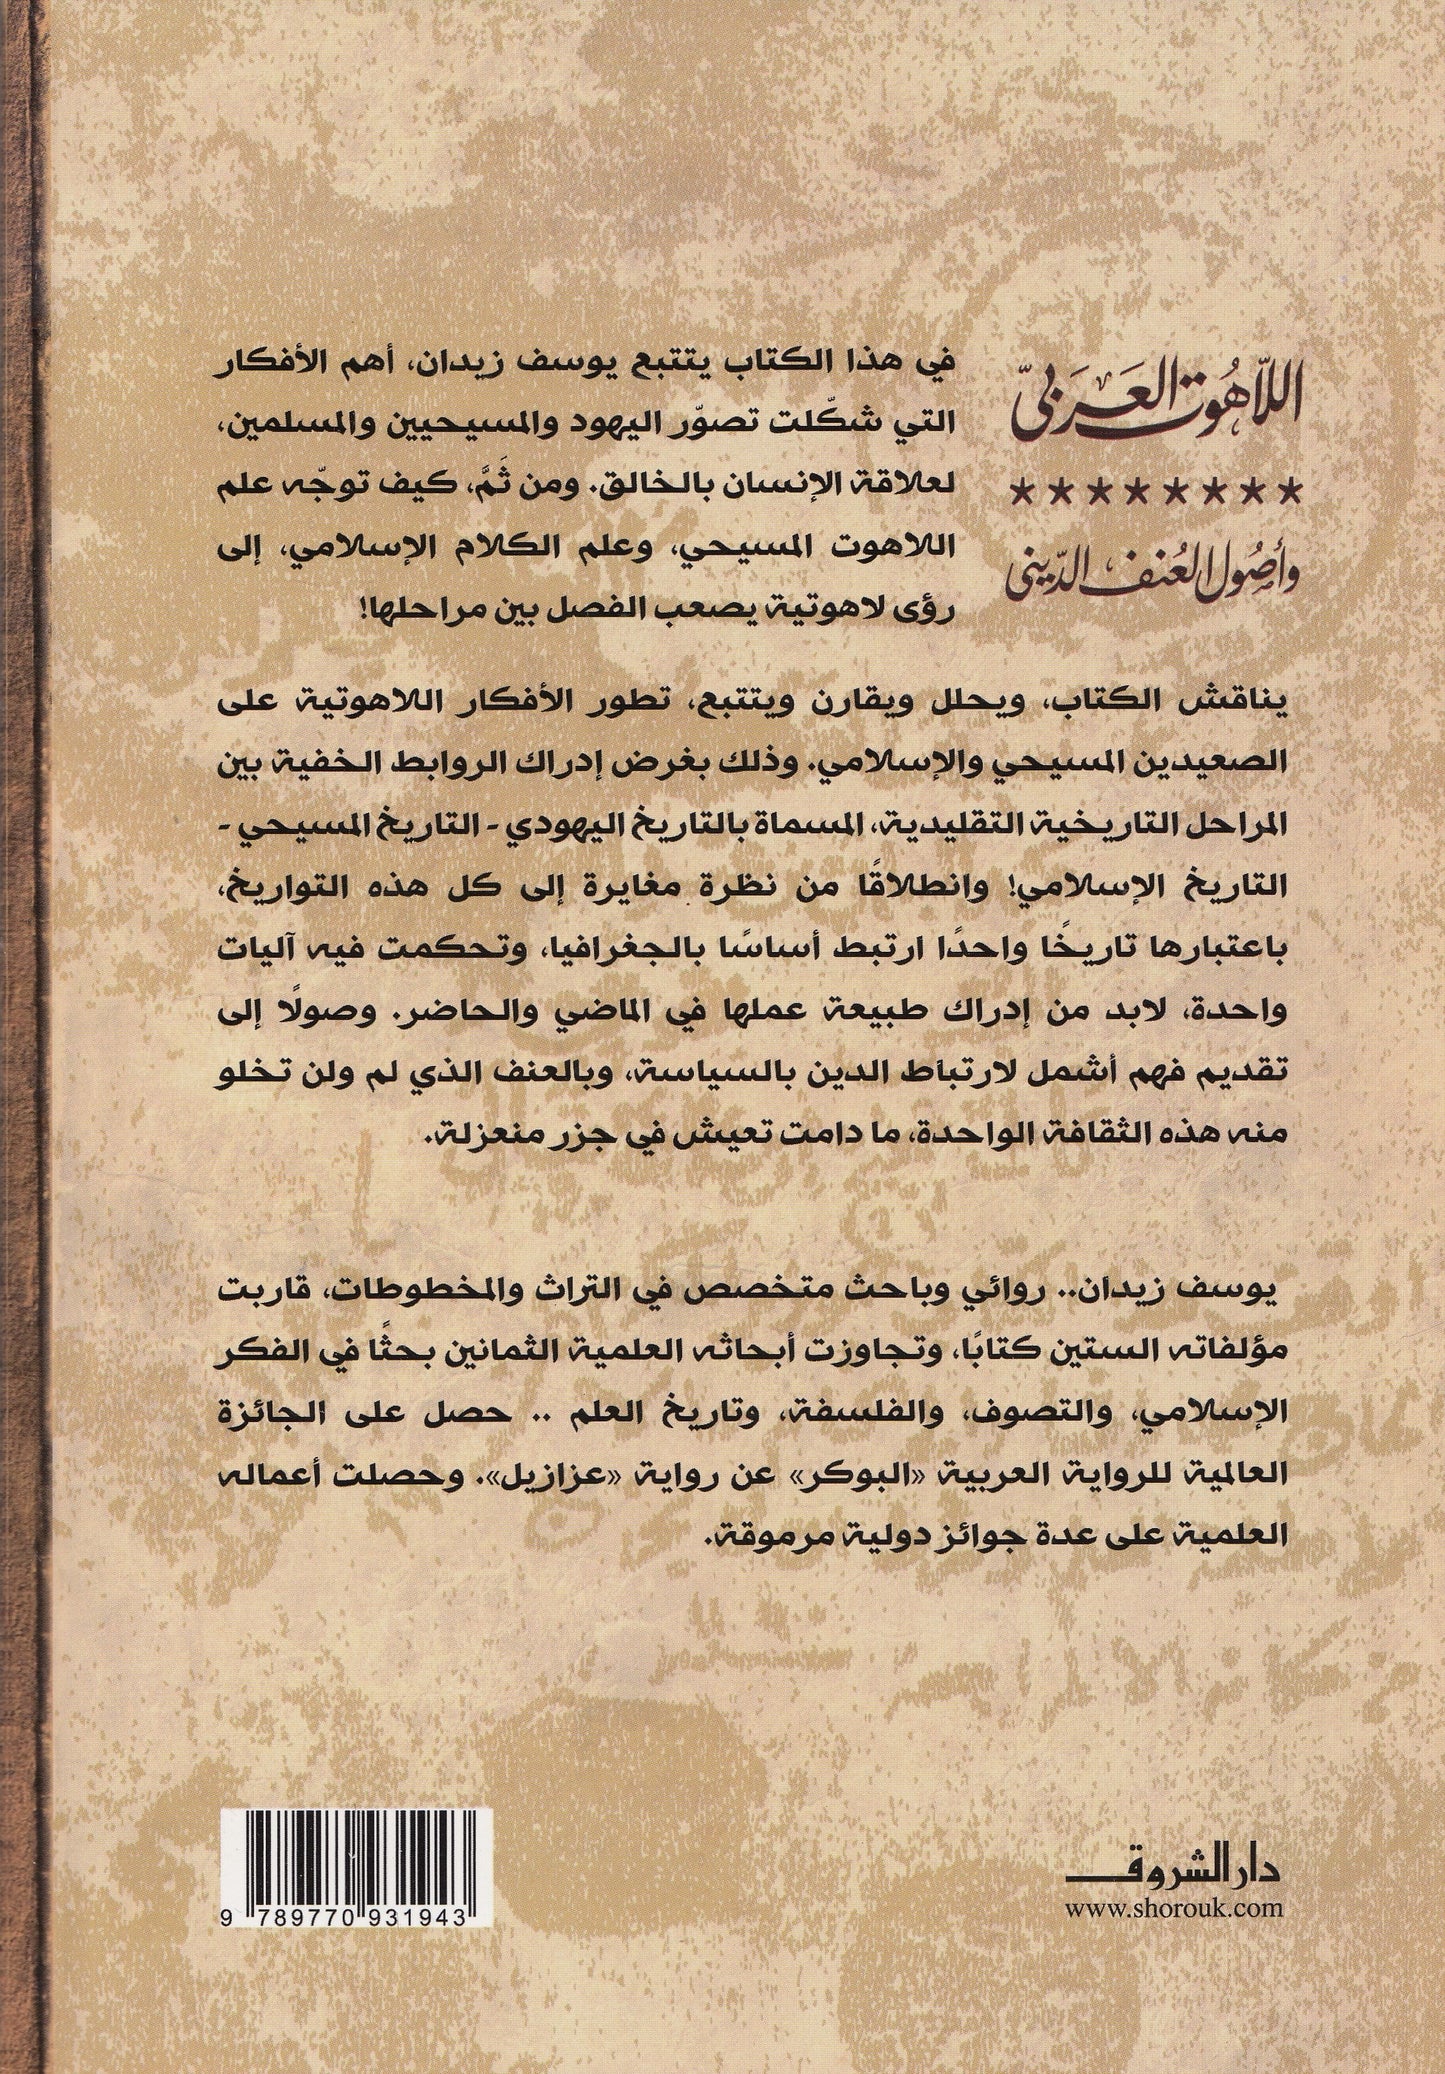 اللاهُوت العَرَبيّ
********
وأصُول العُنف الدّيني
في هذا الكتاب يتتبع يوسف زيدان، أهم الأفكار
التي شكّلت تصوّر اليهود والمسيحيين والمسلمين،
لعلاقة الإنسان بالخالق. ومن ثَمَّ، كيف توجّه علم
اللاهوت المسيحي، وعلم الكلام الإسلامي، إلى
رؤى لاهوتية يصعب الفصل بين مراحلها!
يناقش الكتاب، ويحلل ويقارن ويتتبع، تطور الأفكار اللاهوتية على
الصعيدين المسيحي والإسلامي. وذلك بغرض إدراك الروابط الخفية بين
المراحل التاريخية التقليدية، المسماة بالتاريخ اليهودي - التاريخ المسيحي -
التاريخ الإسلامي! وانطلاقًا من نظرة مغايرة إلى كل هذه التواريخ،
باعتبارها تاريخًا واحدًا ارتبط أساسًا بالجغرافيا، وتحكمت فيه آليات
واحدة، لابد من إدراك طبيعة عملها في الماضي والحاضر. وصولًا إلى
تقديم فهم أشمل لارتباط الدين بالسياسة، وبالعنف الذي لم ولن تخلو
منه هذه الثقافة الواحدة، ما دامت تعيش في جزر منعزلة.
يوسف زيدان.. روائي وباحث متخصص في التراث والمخطوطات، قاربت
مؤلفاته الستين كتابًا، وتجاوزت أبحاثه العلمية الثمانين بحثًا في الفكر
الإسلامي، والتصوف، والفلسفة، وتاريخ العلم .. حصل على الجائزة
العالمية للرواية العربية «البوكر» عن رواية «عزازيل». وحصلت أعماله
العلمية على عدة جوائز دولية مرموقة.
دار الشروق
www.shorouk.com
9 789770 931943